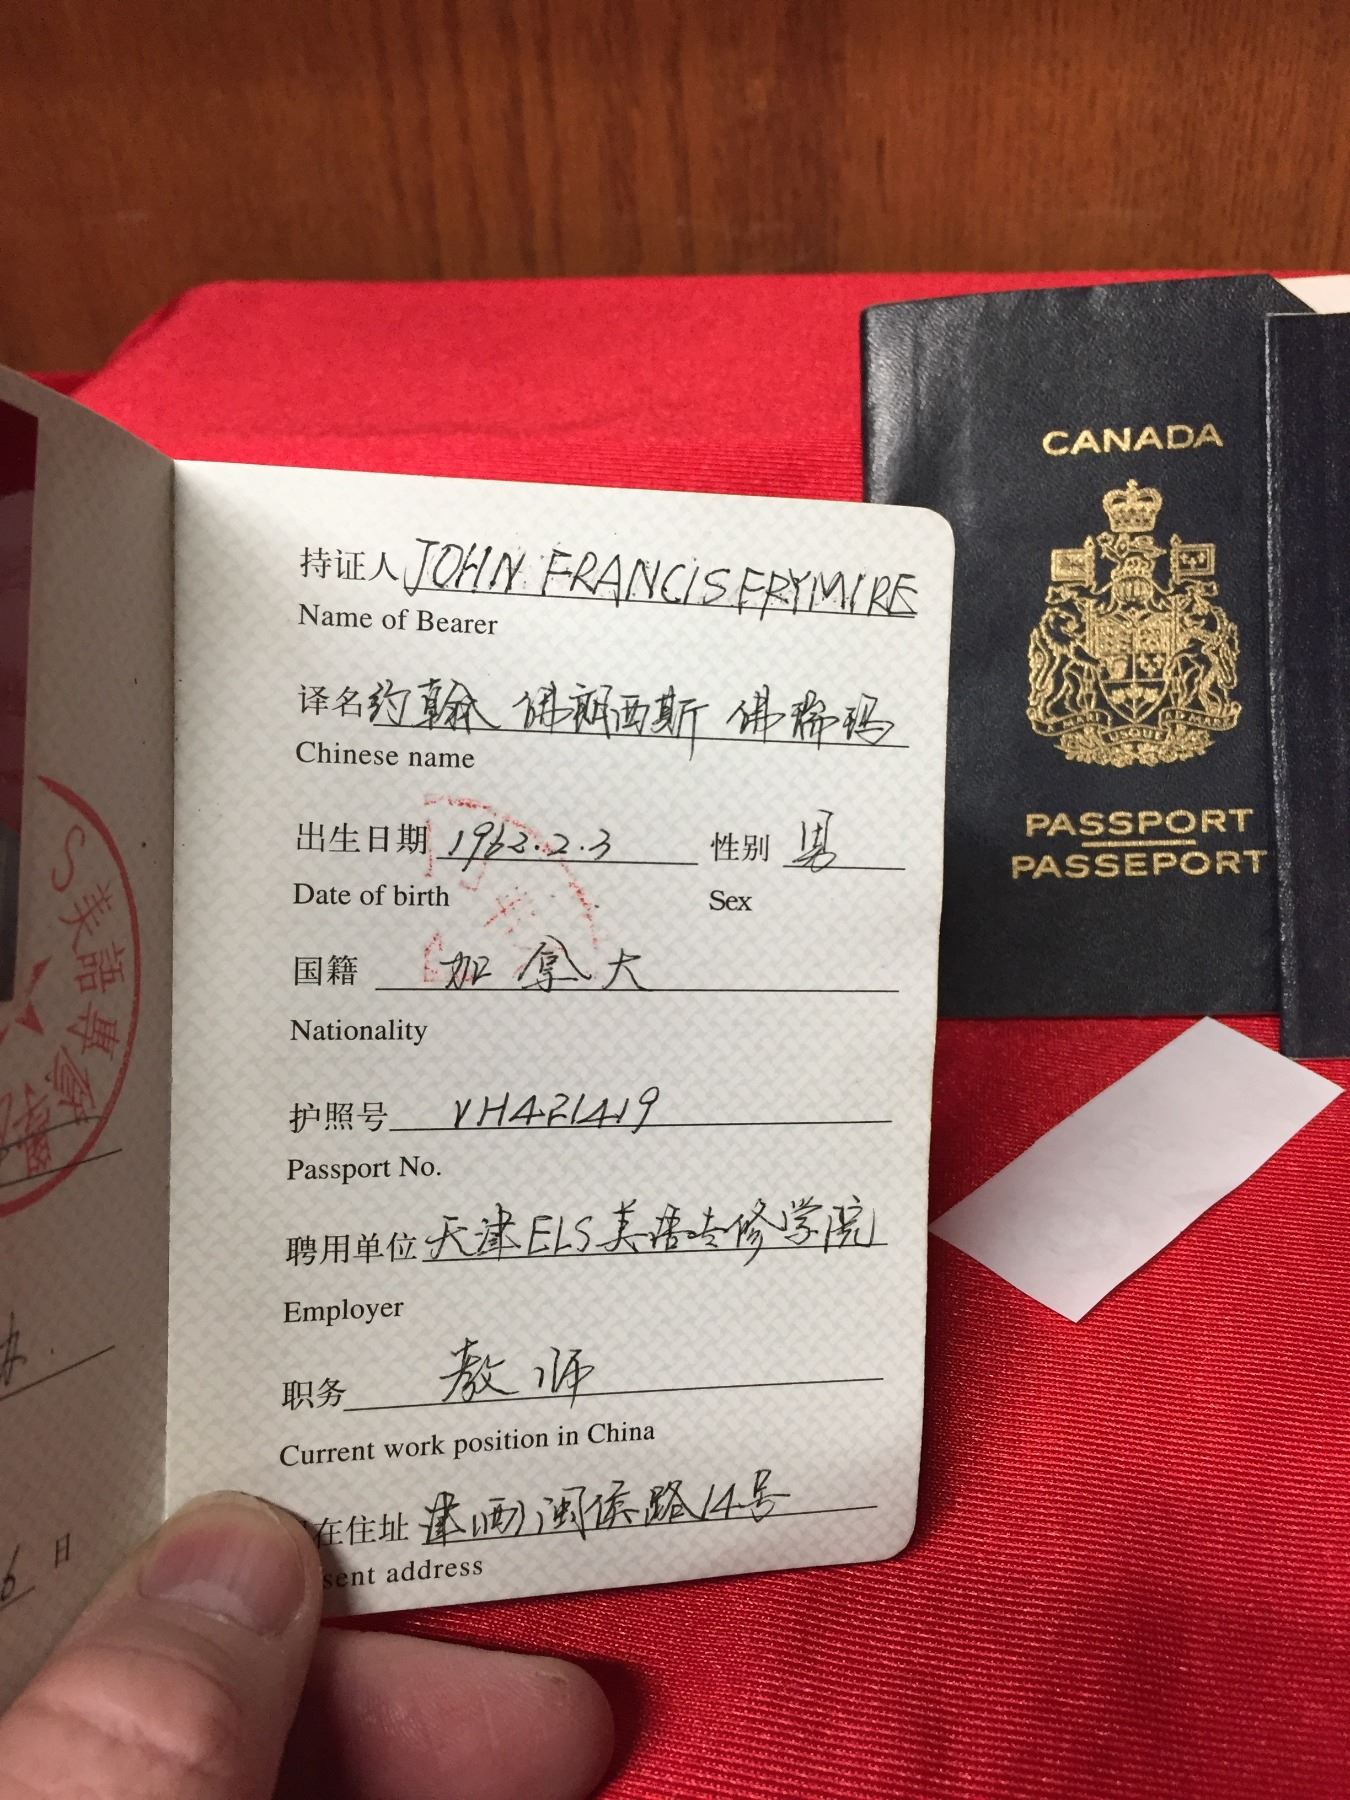 持证人 JOHN FRANCIS FRYMIRE
Name of Bearer
译名 约翰 佛朗西斯 佛瑞玛
Chinese name
出生日期 1962.2.3 性别 男
Date of birth Sex
国籍 加拿大
Nationality
护照号 VH421419
Passport No.
聘用单位 天津ELS英语专修学院
Employer
职务 教师
Current work position in China
在住址 津河西闽侯路14号
sent address
S 英語專修學
6 日
CANADA
PASSPORT
PASSEPORT